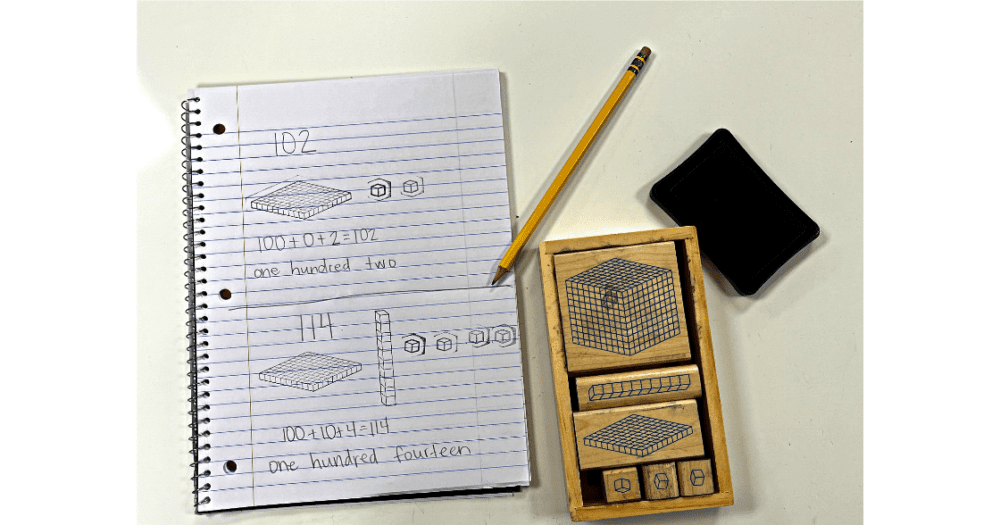 102
100+0+2=102
one hundred two
114
100+10+4=114
one hundred fourteen